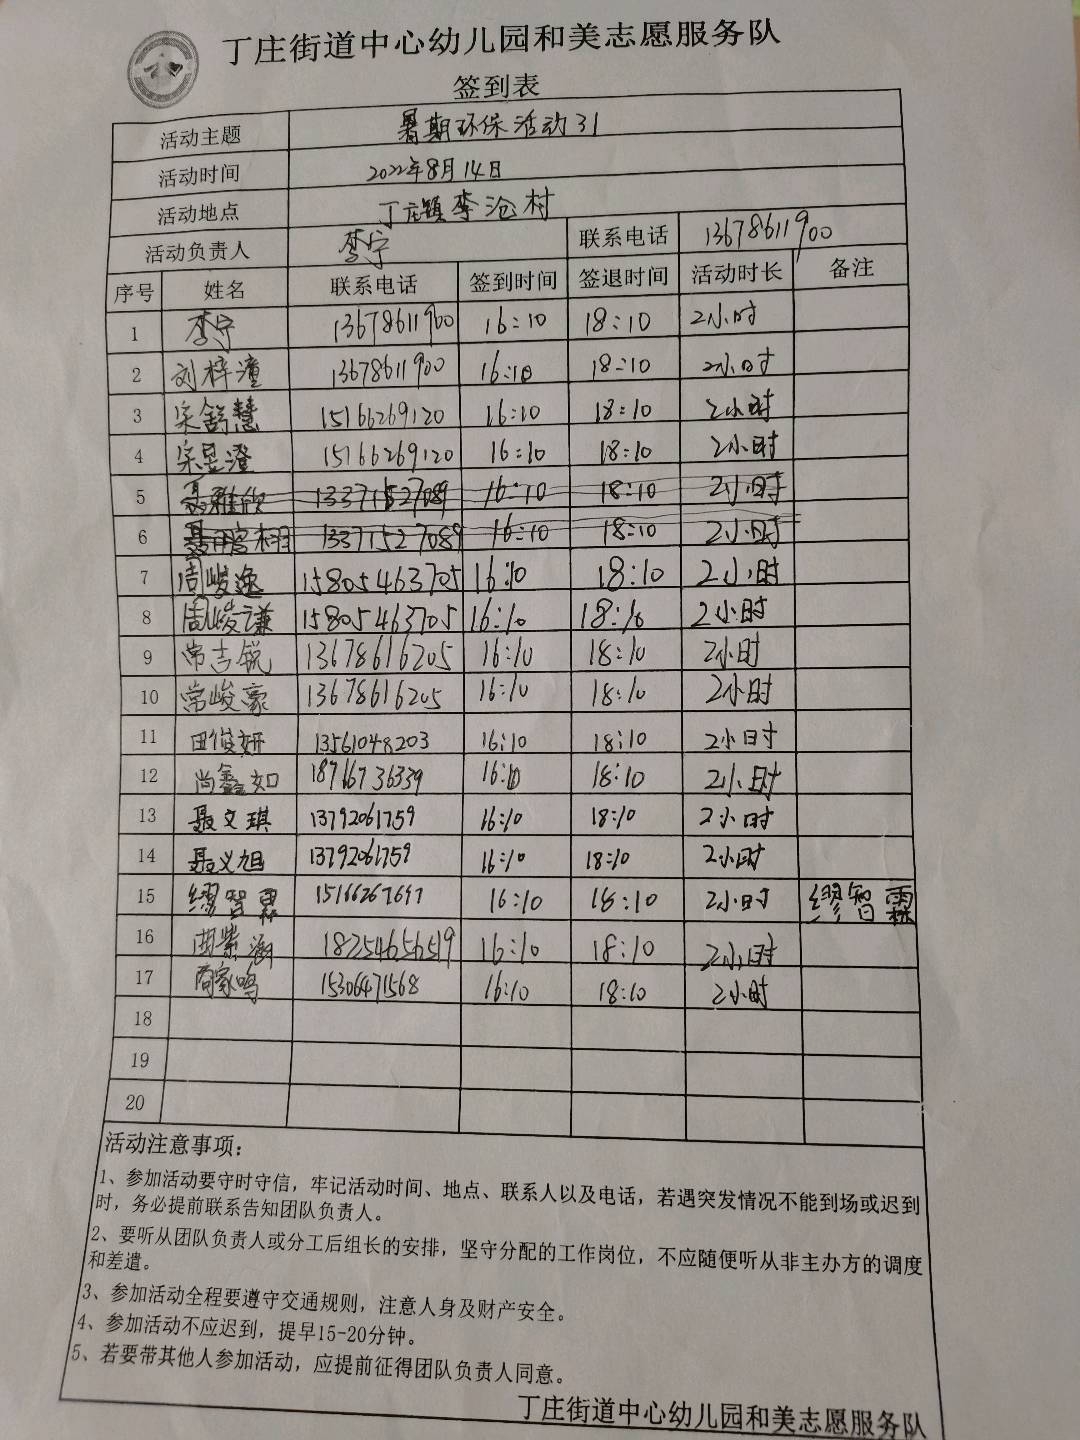 丁庄街道中心幼儿园和美志愿服务队
签到表
活动主题 暑期环保活动31
活动时间 2022年8月14日
活动地点 丁庄镇李沧村
活动负责人 李宁 联系电话 13678611900
序号 姓名 联系电话 签到时间 签退时间 活动时长 备注
1 李宁 13678611900 16:10 18:10 2小时
2 刘梓潼 13678611900 16:10 18:10 2小时
3 宋舒慧 15166269120 16:10 18:10 2小时
4 宋昱澄 15166269120 16:10 18:10 2小时
5 聂雅欣 13371527089 16:10 18:10 2小时
6 聂鹏栩 13371527089 16:10 18:10 2小时
7 周峻逸 15805463705 16:10 18:10 2小时
8 周峻谦 15805463705 16:10 18:10 2小时
9 常吉锐 13678616205 16:10 18:10 2小时
10 常峻豪 13678616205 16:10 18:10 2小时
11 田俊妍 13561048203 16:10 18:10 2小时
12 尚鑫如 18716736339 16:10 18:10 2小时
13 聂文琪 13792061759 16:10 18:10 2小时
14 聂义旭 13792061759 16:10 18:10 2小时
15 缪智霖 16:10 18:10 2小时 缪智霖
16 曲紫涵 18254656519 16:10 18:10 2小时
17 商家鸣 15306471568 16:10 18:10 2小时
18
19
20
活动注意事项：
1、参加活动要守时守信，牢记活动时间、地点、联系人以及电话，若遇突发情况不能到场或迟到
时，务必提前联系告知团队负责人。
2、要听从团队负责人或分工后组长的安排，坚守分配的工作岗位，不应随便听从非主办方的调度
和差遣。
3、参加活动全程要遵守交通规则，注意人身及财产安全。
4、参加活动不应迟到，提早15-20分钟。
5、若要带其他人参加活动，应提前征得团队负责人同意。
丁庄街道中心幼儿园和美志愿服务队